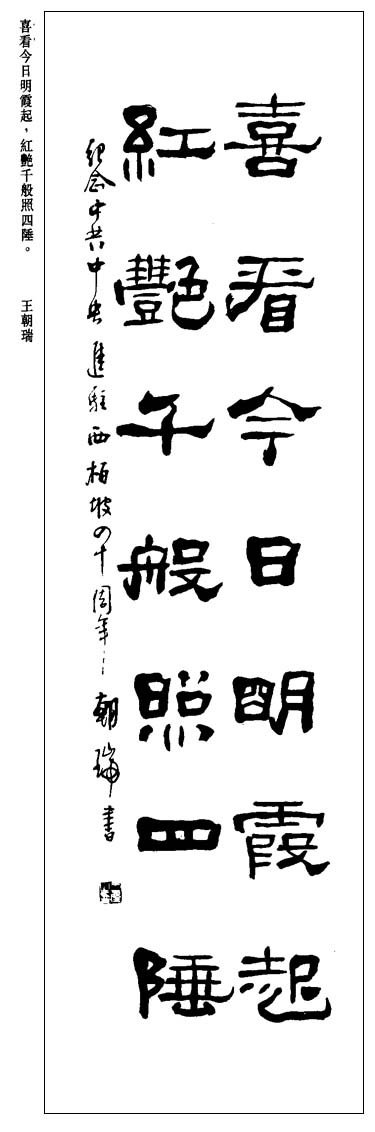 喜看今日明霞起
紅艷千般照四陲
紀念中共中央進駐西柏坡四十周年 朝瑞書
喜看今日明霞起，紅艷千般照四陲。 王朝瑞